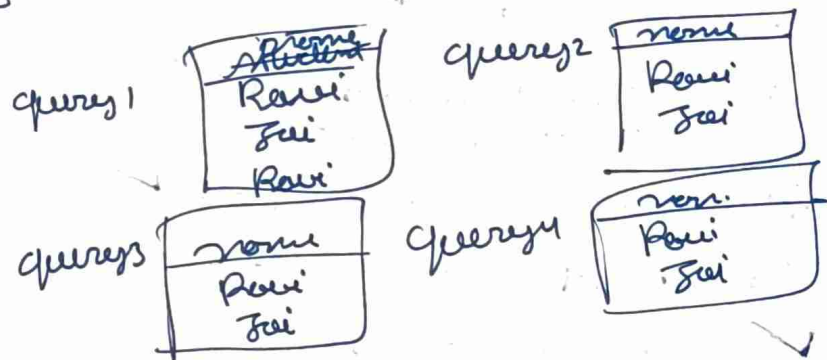 query1
name
Ravi
Jai
Ravi
query2
name
Ravi
Jai
query3
name
Ravi
Jai
query4
Ravi
Jai